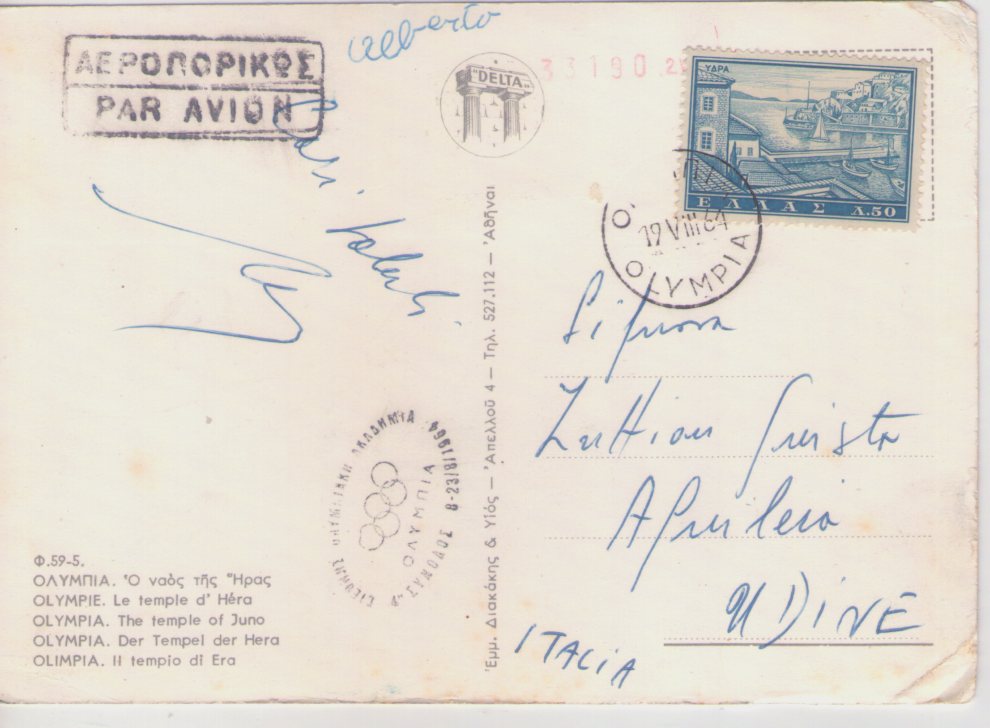 ΑΕΡΟΠΟΡΙΚΩΣ
PAR AVION
alberto
"DELTA"
33190
ΥΔΡΑ
ΕΛΛΑΣ Λ.50
19 VIII 64
OLYMPIA
Cari saluti
ΔΙΕΘΝΗΣ ΟΛΥΜΠΙΑΚΗ ΑΚΑΔΗΜΙΑ
ΟΛΥΜΠΙΑ
ΣΥΝΟΔΟΣ 8-23/8/1964
Φ.59-5.
ΟΛΥΜΠΙΑ. Ὁ ναὸς τῆς Ἥρας
OLYMPIE. Le temple d' Héra
OLYMPIA. The temple of Juno
OLYMPIA. Der Tempel der Hera
OLIMPIA. Il tempio di Era
Ἐμμ. Διακάκης & Υἱός — Ἀπελλοῦ 4 — Τηλ. 527.112 — Ἀθῆναι
Signora
Aquileia
UDINE
ITALIA